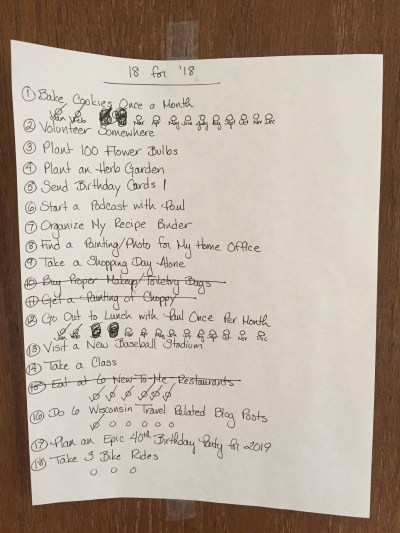 18 for '18
① Bake Cookies Once a Month
Jan Feb Mar Apr May June July Aug Sept Oct Nov Dec
② Volunteer Somewhere
③ Plant 100 Flower Bulbs
④ Plant an Herb Garden
⑤ Send Birthday Cards!
⑥ Start a Podcast with Paul
⑦ Organize My Recipe Binder
⑧ Find a Painting/Photo for My Home Office
⑨ Take a Shopping Day Alone
⑩ Buy Proper Makeup/Toiletry Bags
⑪ Get a Painting of Choppy
⑫ Go Out to Lunch with Paul Once Per Month
Jan Feb Mar Apr May Jun July Aug Sept Oct Nov Dec
⑬ Visit a New Baseball Stadium
⑭ Take a Class
⑮ Eat at 6 New-To-Me Restaurants
⑯ Do 6 Wisconsin Travel Related Blog Posts
⑰ Plan an Epic 40th Birthday Party for 2019
⑱ Take 3 Bike Rides